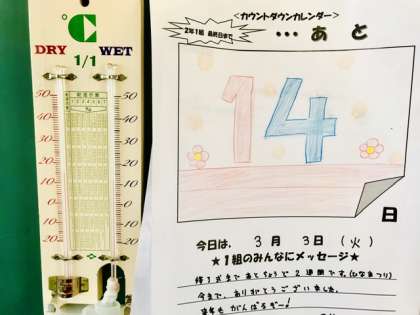 <カウントダウンカレンダー>
2年1組 最終日まで
・・・あと
14
日
今日は、 3 月 3 日 (火)
★1組のみんなにメッセージ★
修了式まであとちょうど2週間です。(ひなまつり)
今まで、ありがとうございました。
来年もがんばるぞー!
℃
DRY WET
1/1
50 50
40 40
30 30
20 20
10 10
0 0
10 10
20 20